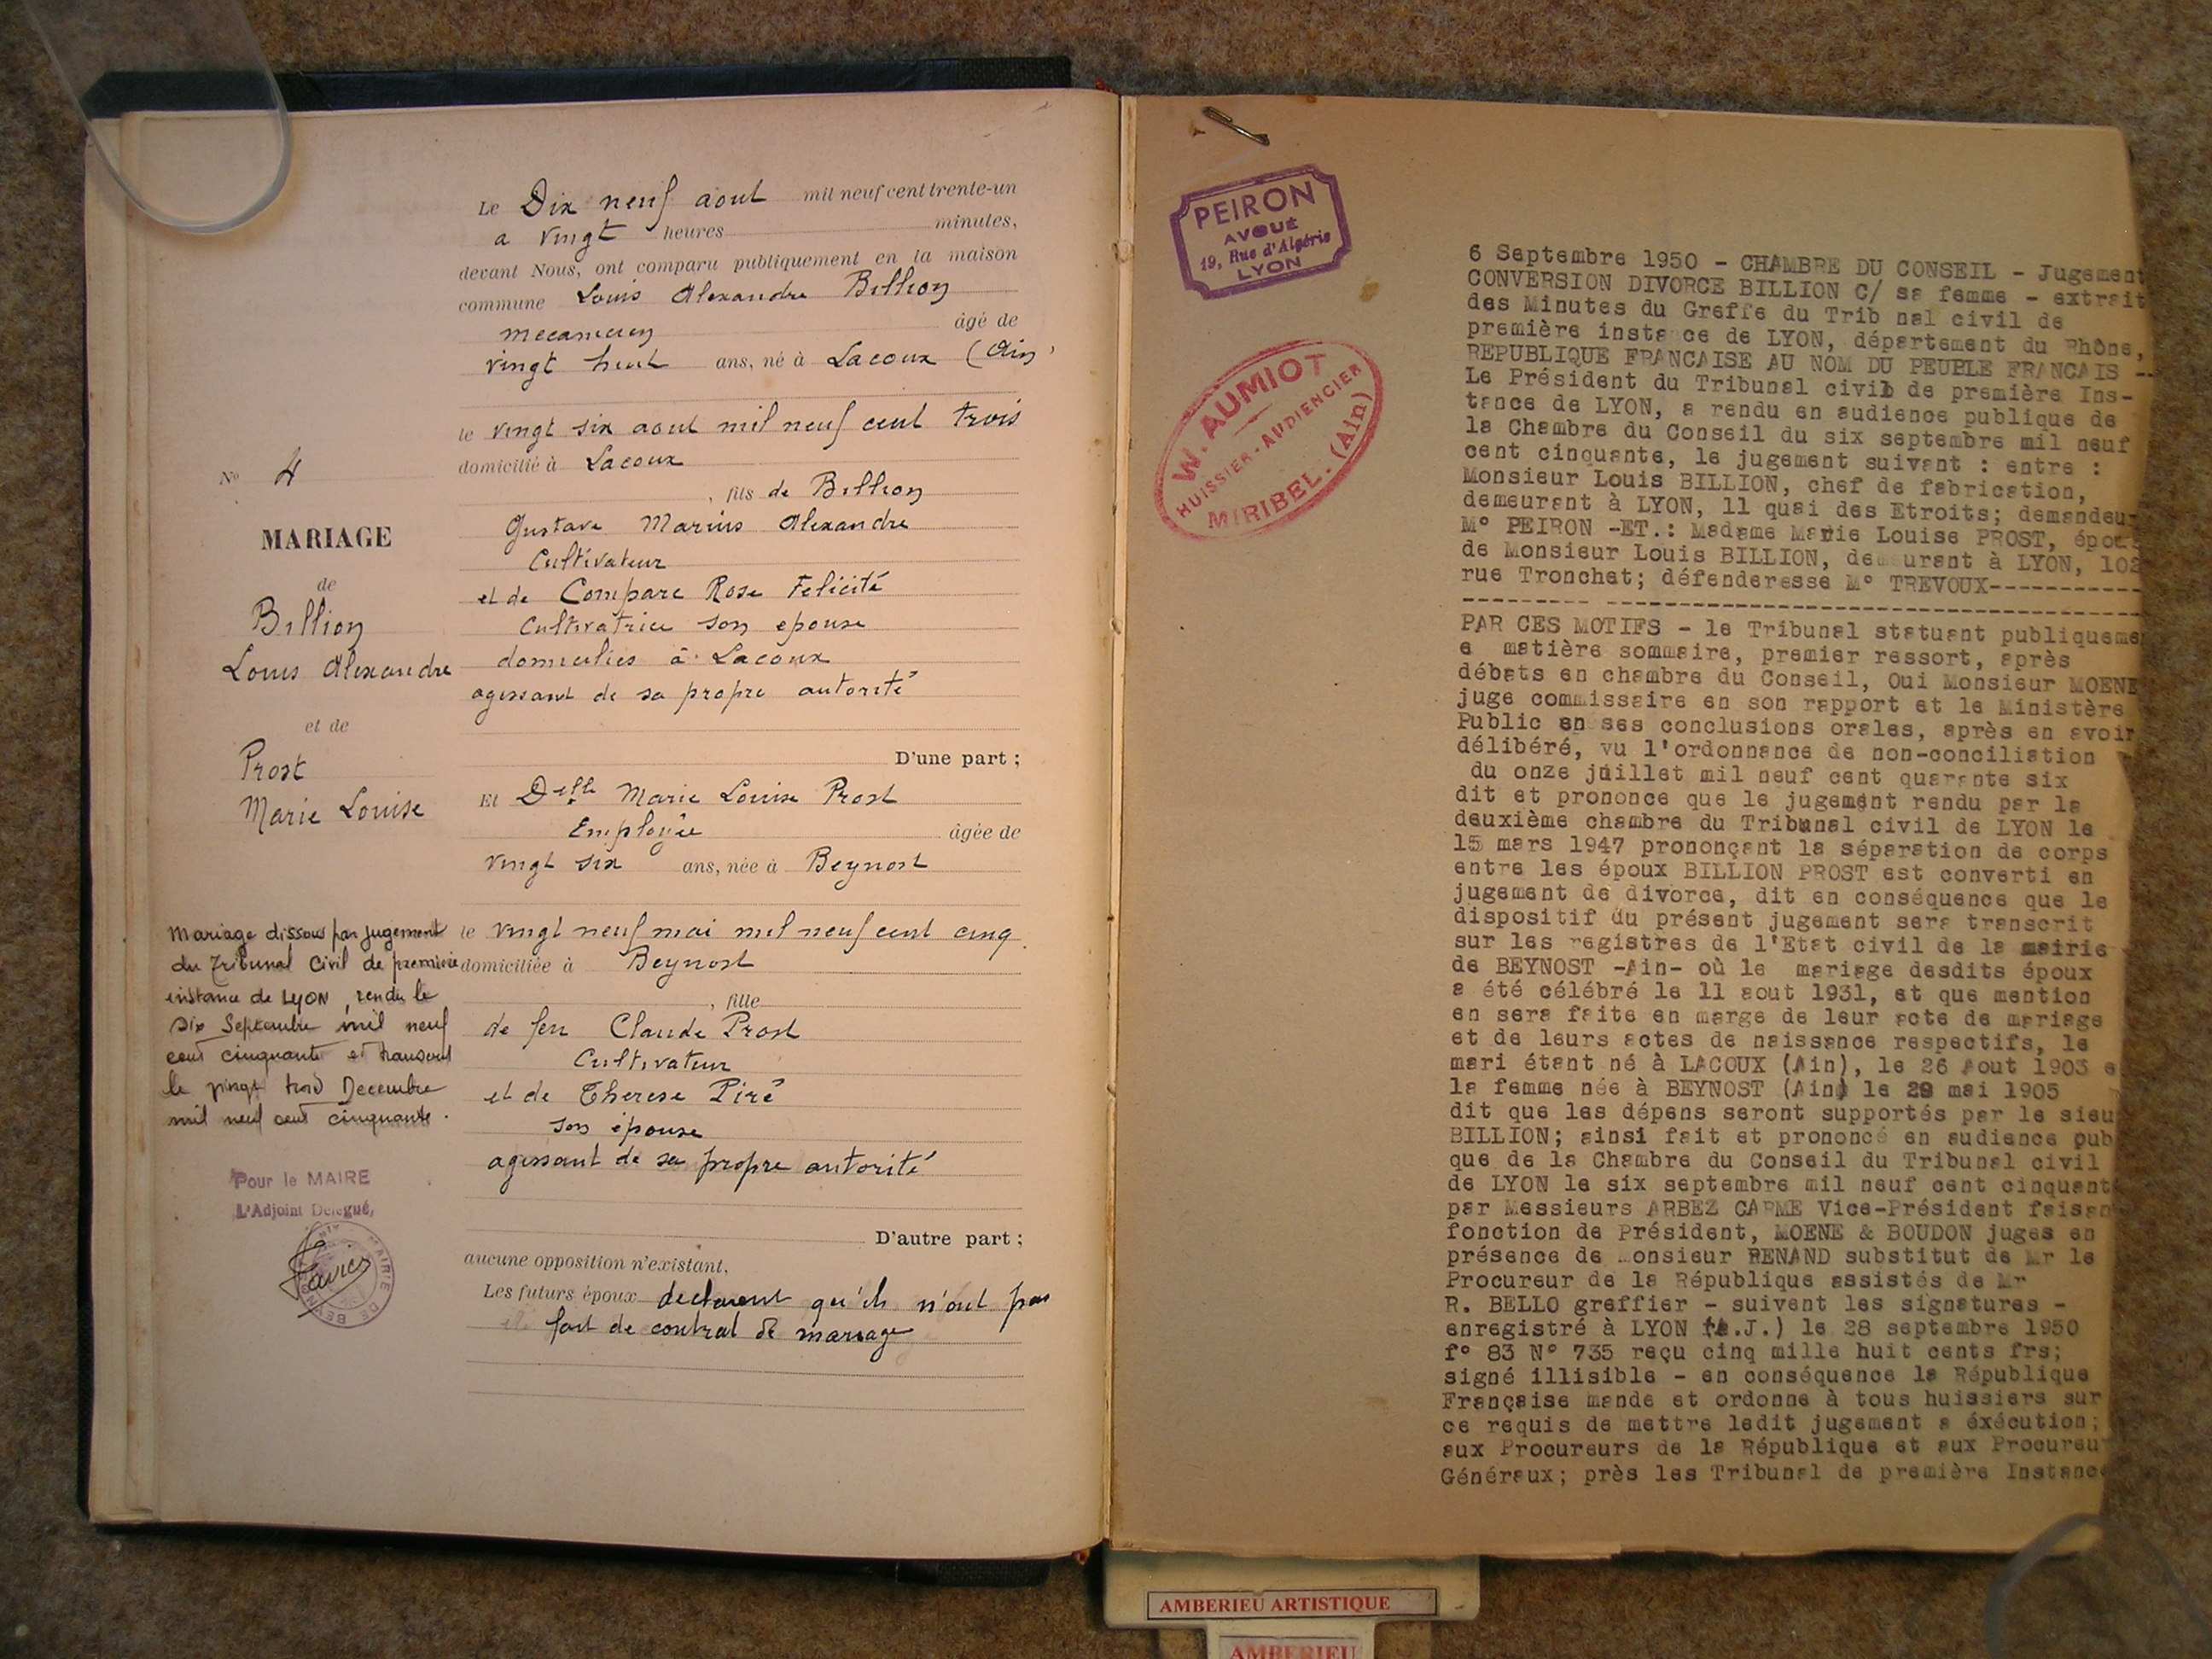 Le Dix neuf aout mil neuf cent trente-un
a vingt heures minutes,
devant Nous, ont comparu publiquement en la maison
commune Louis Alexandre Billion
mecanicien âgé de
vingt huit ans, né à Lacoux (Ain)
le vingt six aout mil neuf cent trois
domicilié à Lacoux
, fils de Billion
Gustave Marius Alexandre
Cultivateur
et de Compare Rose Felicité
Cultivatrice son epouse
domicilies à Lacoux
agissant de sa propre autorité
D'une part ;
Et Delle Marie Louise Prost
Employée âgée de
vingt six ans, née à Beynost
le vingt neuf mai mil neuf cent cinq
domiciliée à Beynost
, fille
de feu Claude Prost
Cultivateur
et de Therese Piré
son épouse
agissant de sa propre autorité
D'autre part ;
aucune opposition n'existant,
Les futurs époux declarent qu'ils n'ont pas
fait de contrat de mariage
No 4
MARIAGE
de
Billion
Louis Alexandre
et de
Prost
Marie Louise
Mariage dissous par jugement
du Tribunal Civil de première
instance de LYON, rendu le
Six Septembre mil neuf
cent cinquante et transcrit
le vingt trois Decembre
mil neuf cent cinquante.
Pour le MAIRE
L'Adjoint Délégué,
PEIRON
AVOUÉ
19, Rue d'Algérie
LYON
W. AUMIOT
HUISSIER-AUDIENCIER
MIRIBEL. (Ain)
6 Septembre 1950 - CHAMBRE DU CONSEIL - Jugement
CONVERSION DIVORCE BILLION C/ sa femme - extrait
des Minutes du Greffe du Trib nal civil de
première insta ce de LYON, département du Rhône,
REPUBLIQUE FRANCAISE AU NOM DU PEUPLE FRANCAIS --
Le Président du Tribunal civil de première Ins-
tance de LYON, a rendu en audience publique de
la Chambre du Conseil du six septembre mil neuf
cent cinquante, le jugement suivant : entre :
Monsieur Louis BILLION, chef de fabrication,
demeurant à LYON, 11 quai des Etroits; demandeur
M° PEIRON -ET.: Madame Marie Louise PROST, épou
de Monsieur Louis BILLION, demeurant à LYON, 102
rue Tronchet; défenderesse M° TREVOUX-----------
--------- -----------------------------------
PAR CES MOTIFS - le Tribunal statuant publiqueme
e matière sommaire, premier ressort, après
débats en chambre du Conseil, Oui Monsieur MOENE
juge commissaire en son rapport et le Ministère
Public en ses conclusions orales, après en avoir
délibéré, vu l'ordonnance de non-conciliation
du onze juillet mil neuf cent quarante six
dit et prononce que le jugement rendu par la
deuxième chambre du Tribunal civil de LYON le
15 mars 1947 prononçant la séparation de corps
entre les époux BILLION PROST est converti en
jugement de divorce, dit en conséquence que le
dispositif du présent jugement sera transcrit
sur les registres de l'Etat civil de la mairie
de BEYNOST -Ain- où le mariage desdits époux
a été célébré le 11 aout 1931, et que mention
en sera faite en marge de leur acte de mariage
et de leurs actes de naissance respectifs, le
mari étant né à LACOUX (Ain), le 26 Aout 1903 e
la femme née à BEYNOST (Ain) le 29 mai 1905
dit que les dépens seront supportés par le sieu
BILLION; ainsi fait et prononcé en audience pub
que de la Chambre du Conseil du Tribunal civil
de LYON le six septembre mil neuf cent cinquante
par Messieurs ARBEZ CARME Vice-Président faisan
fonction de Président, MOENE & BOUDON juges en
présence de Monsieur RENAND substitut de Mr le
Procureur de la République assistés de Mr
R. BELLO greffier - suivent les signatures -
enregistré à LYON (A.J.) le 28 septembre 1950
f° 83 N° 735 reçu cinq mille huit cents frs;
signé illisible - en conséquence la République
Française mande et ordonne à tous huissiers sur
ce requis de mettre ledit jugement a éxécution;
aux Procureurs de la République et aux Procureu
Généraux; près les Tribunal de première Instance
AMBERIEU ARTISTIQUE
AMBERIEU